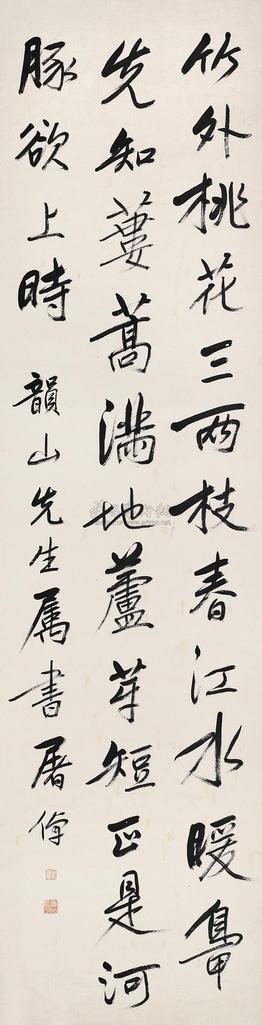 竹外桃花三兩枝春江水暖鴨
先知蔞蒿滿地蘆芽短正是河
豚欲上時 韻山先生属書屠倬